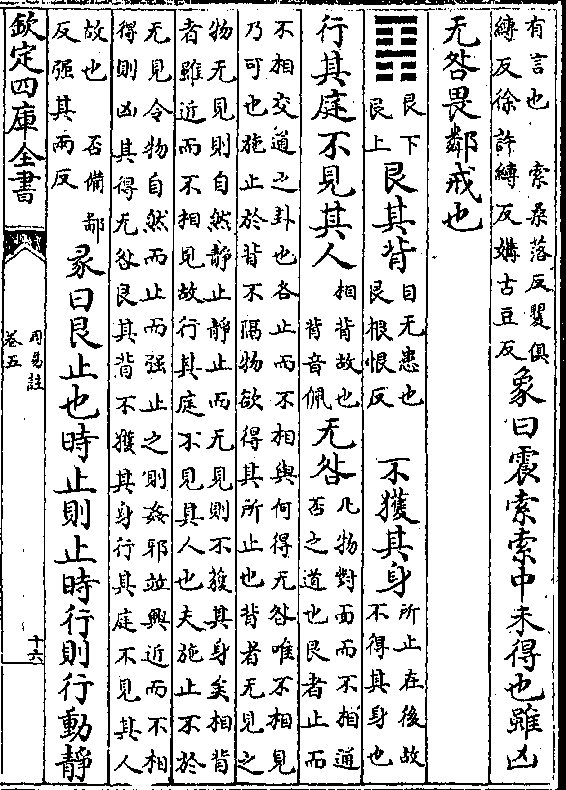 有言也　索桑落反矍俱
縛反徐許縛反媾古豆反
象曰震索索中未得也雖凶
无咎畏鄰戒也
䷳
艮下
艮上
艮其背
目无患也
艮根恨反
不獲其身
所止在後故
不得其身也
行其庭不見其人
相背故也
背音佩
无咎
凡物對面而不相通
否之道也艮者止而
不相交道之卦也各止而不相與何得无咎唯不相見
乃可也施止於背不隔物欲得其所止也背者无見之
物无見則自然靜止靜止而无見則不獲其身矣相背
者雖近而不相見故行其庭不見其人也夫施止不於
无見令物自然而止而强止之則姦邪並興近而不相
得則凶其得无咎艮其背不獲其身行其庭不見其人
故也　否備鄙
反强其兩反
彖曰艮止也時止則止時行則行動靜
欽定四庫全書
周易註
卷五
十六